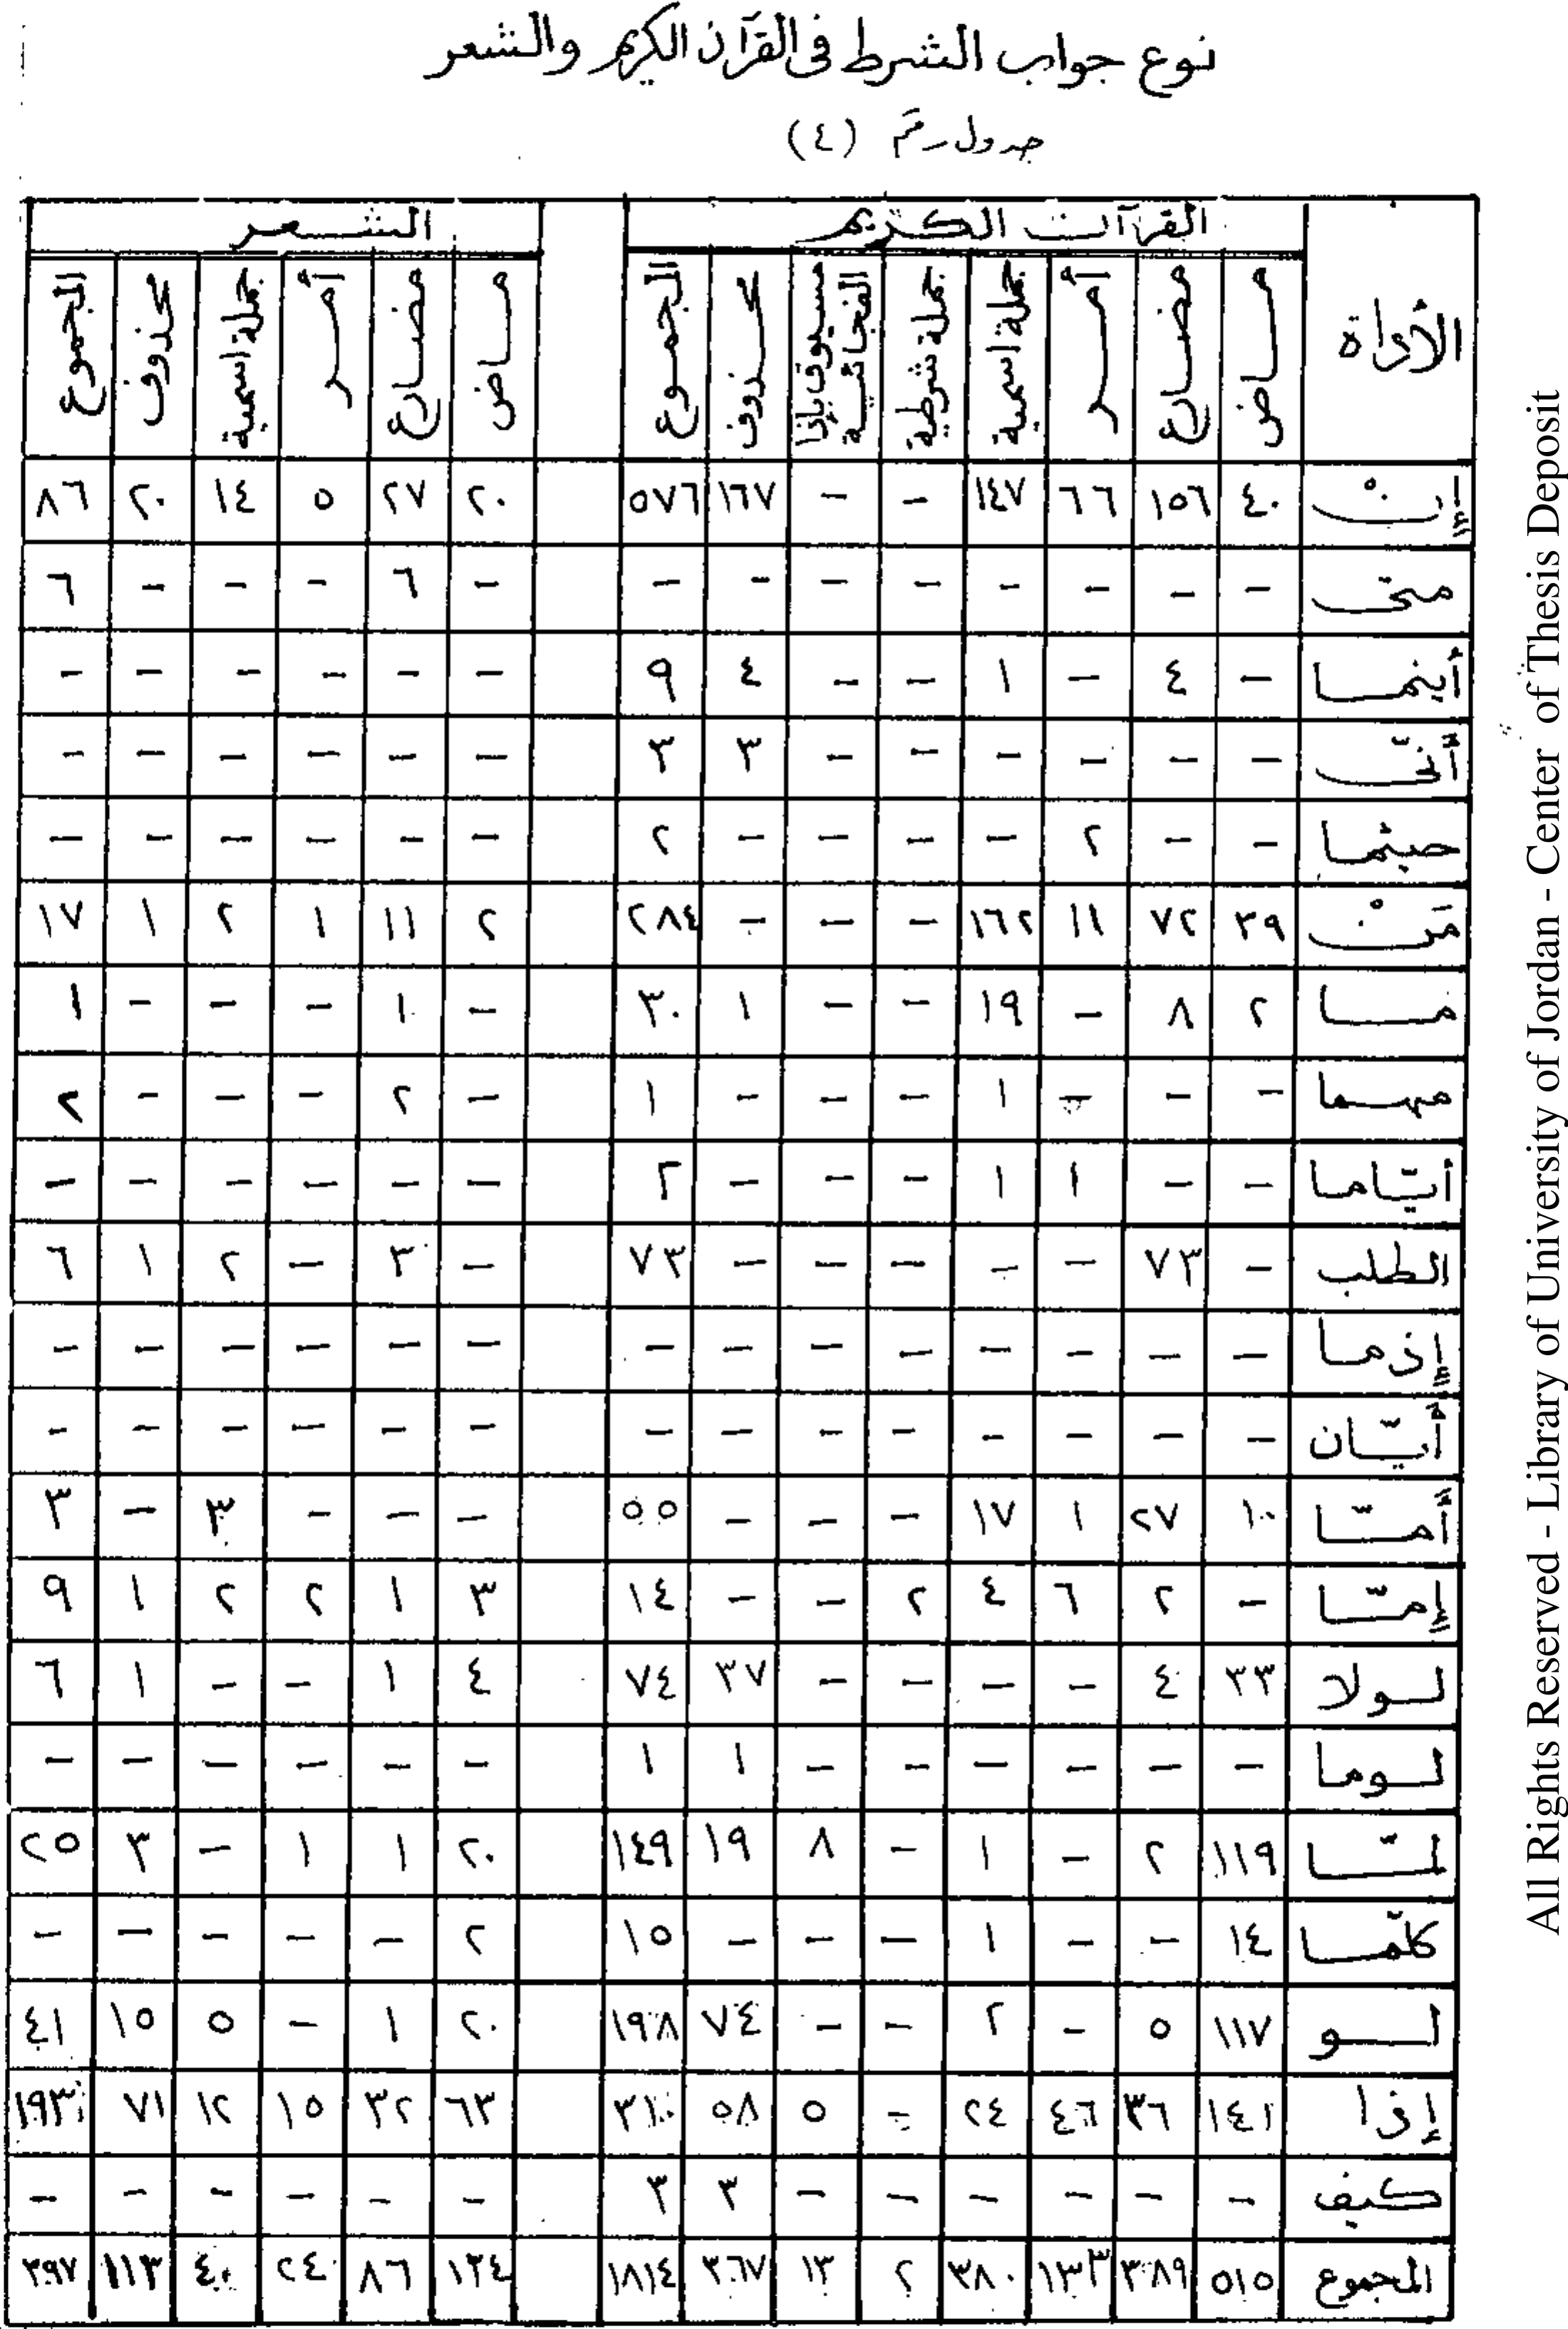 نوع جواب الشرط في القرآن الكريم والشعر
جدول رقم (٤)
الأداة | القرآن الكريم | الشعر
ماض | مضارع | أمر | جملة اسمية | جملة شرطية | مسبوق بإذا الفجائية | محذوف | المجموع | ماض | مضارع | أمر | جملة اسمية | محذوف | المجموع
إن ْ | ٤٠ | ١٥٦ | ٦٦ | ١٤٧ | - | - | ١٦٧ | ٥٧٦ | ٢٠ | ٢٧ | ٥ | ١٤ | ٢٠ | ٨٦
متى | - | - | - | - | - | - | - | - | - | ٦ | - | - | - | ٦
أينما | - | ٤ | - | ١ | - | - | ٤ | ٩ | - | - | - | - | - | -
أنّى | - | - | - | - | - | - | ٣ | ٣ | - | - | - | - | - | -
حيثما | - | - | ٢ | - | - | - | - | ٢ | - | - | - | - | - | -
مَنْ | ٣٩ | ٧٢ | ١١ | ١٦٢ | - | - | - | ٢٨٤ | ٢ | ١١ | ١ | ٢ | ١ | ١٧
ما | ٢ | ٨ | - | ١٩ | - | - | ١ | ٣٠ | - | ١ | - | - | - | ١
مهما | - | - | - | ١ | - | - | - | ١ | - | ٢ | - | - | - | ٢
أيّاما | - | - | ١ | ١ | - | - | - | ٢ | - | - | - | - | - | -
الطلب | - | ٧٣ | - | - | - | - | - | ٧٣ | - | ٣ | - | ٢ | ١ | ٦
إذما | - | - | - | - | - | - | - | - | - | - | - | - | - | -
أيّان | - | - | - | - | - | - | - | - | - | - | - | - | - | -
أمّا | ١٠ | ٢٧ | ١ | ١٧ | - | - | - | ٥٥ | - | - | - | ٣ | - | ٣
إمّا | - | ٢ | ٦ | ٤ | ٢ | - | - | ١٤ | ٣ | ١ | ٢ | ٢ | ١ | ٩
لولا | ٣٣ | ٤ | - | - | - | - | ٣٧ | ٧٤ | ٤ | ١ | - | - | ١ | ٦
لوما | - | - | - | - | - | - | ١ | ١ | - | - | - | - | - | -
لمّا | ١١٩ | ٢ | - | ١ | - | ٨ | ١٩ | ١٤٩ | ٢٠ | ١ | ١ | - | ٣ | ٢٥
كلّما | ١٤ | - | - | ١ | - | - | - | ١٥ | ٢ | - | - | - | - | -
لو | ١١٧ | ٥ | - | ٢ | - | - | ٧٤ | ١٩٨ | ٢٠ | ١ | - | ٥ | ١٥ | ٤١
إذا | ١٤١ | ٣٦ | ٤٦ | ٢٤ | - | ٥ | ٥٨ | ٣١٠ | ٦٣ | ٣٢ | ١٥ | ١٢ | ٧١ | ١٩٣
كيف | - | - | - | - | - | - | ٣ | ٣ | - | - | - | - | - | -
المجموع | ٥١٥ | ٣٨٩ | ١٣٣ | ٣٨٠ | ٢ | ١٣ | ٣٦٧ | ١٨١٤ | ١٣٤ | ٨٦ | ٢٤ | ٤٠ | ١١٣ | ٣٩٧
All Rights Reserved - Library of University of Jordan - Center of Thesis Deposit